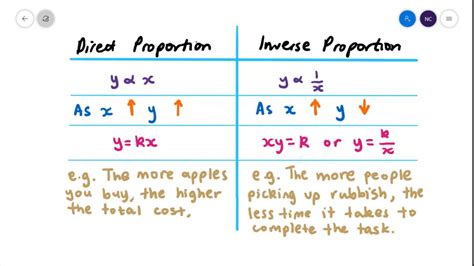 NC
Direct Proportion
Inverse Proportion
y ∝ x
y ∝ 1/x
As x ↑ y ↑
As x ↑ y ↓
y = kx
xy = k or y = k/x
e.g. The more apples
you buy, the higher
the total cost.
e.g. The more people
picking up rubbish, the
less time it takes to
complete the task.